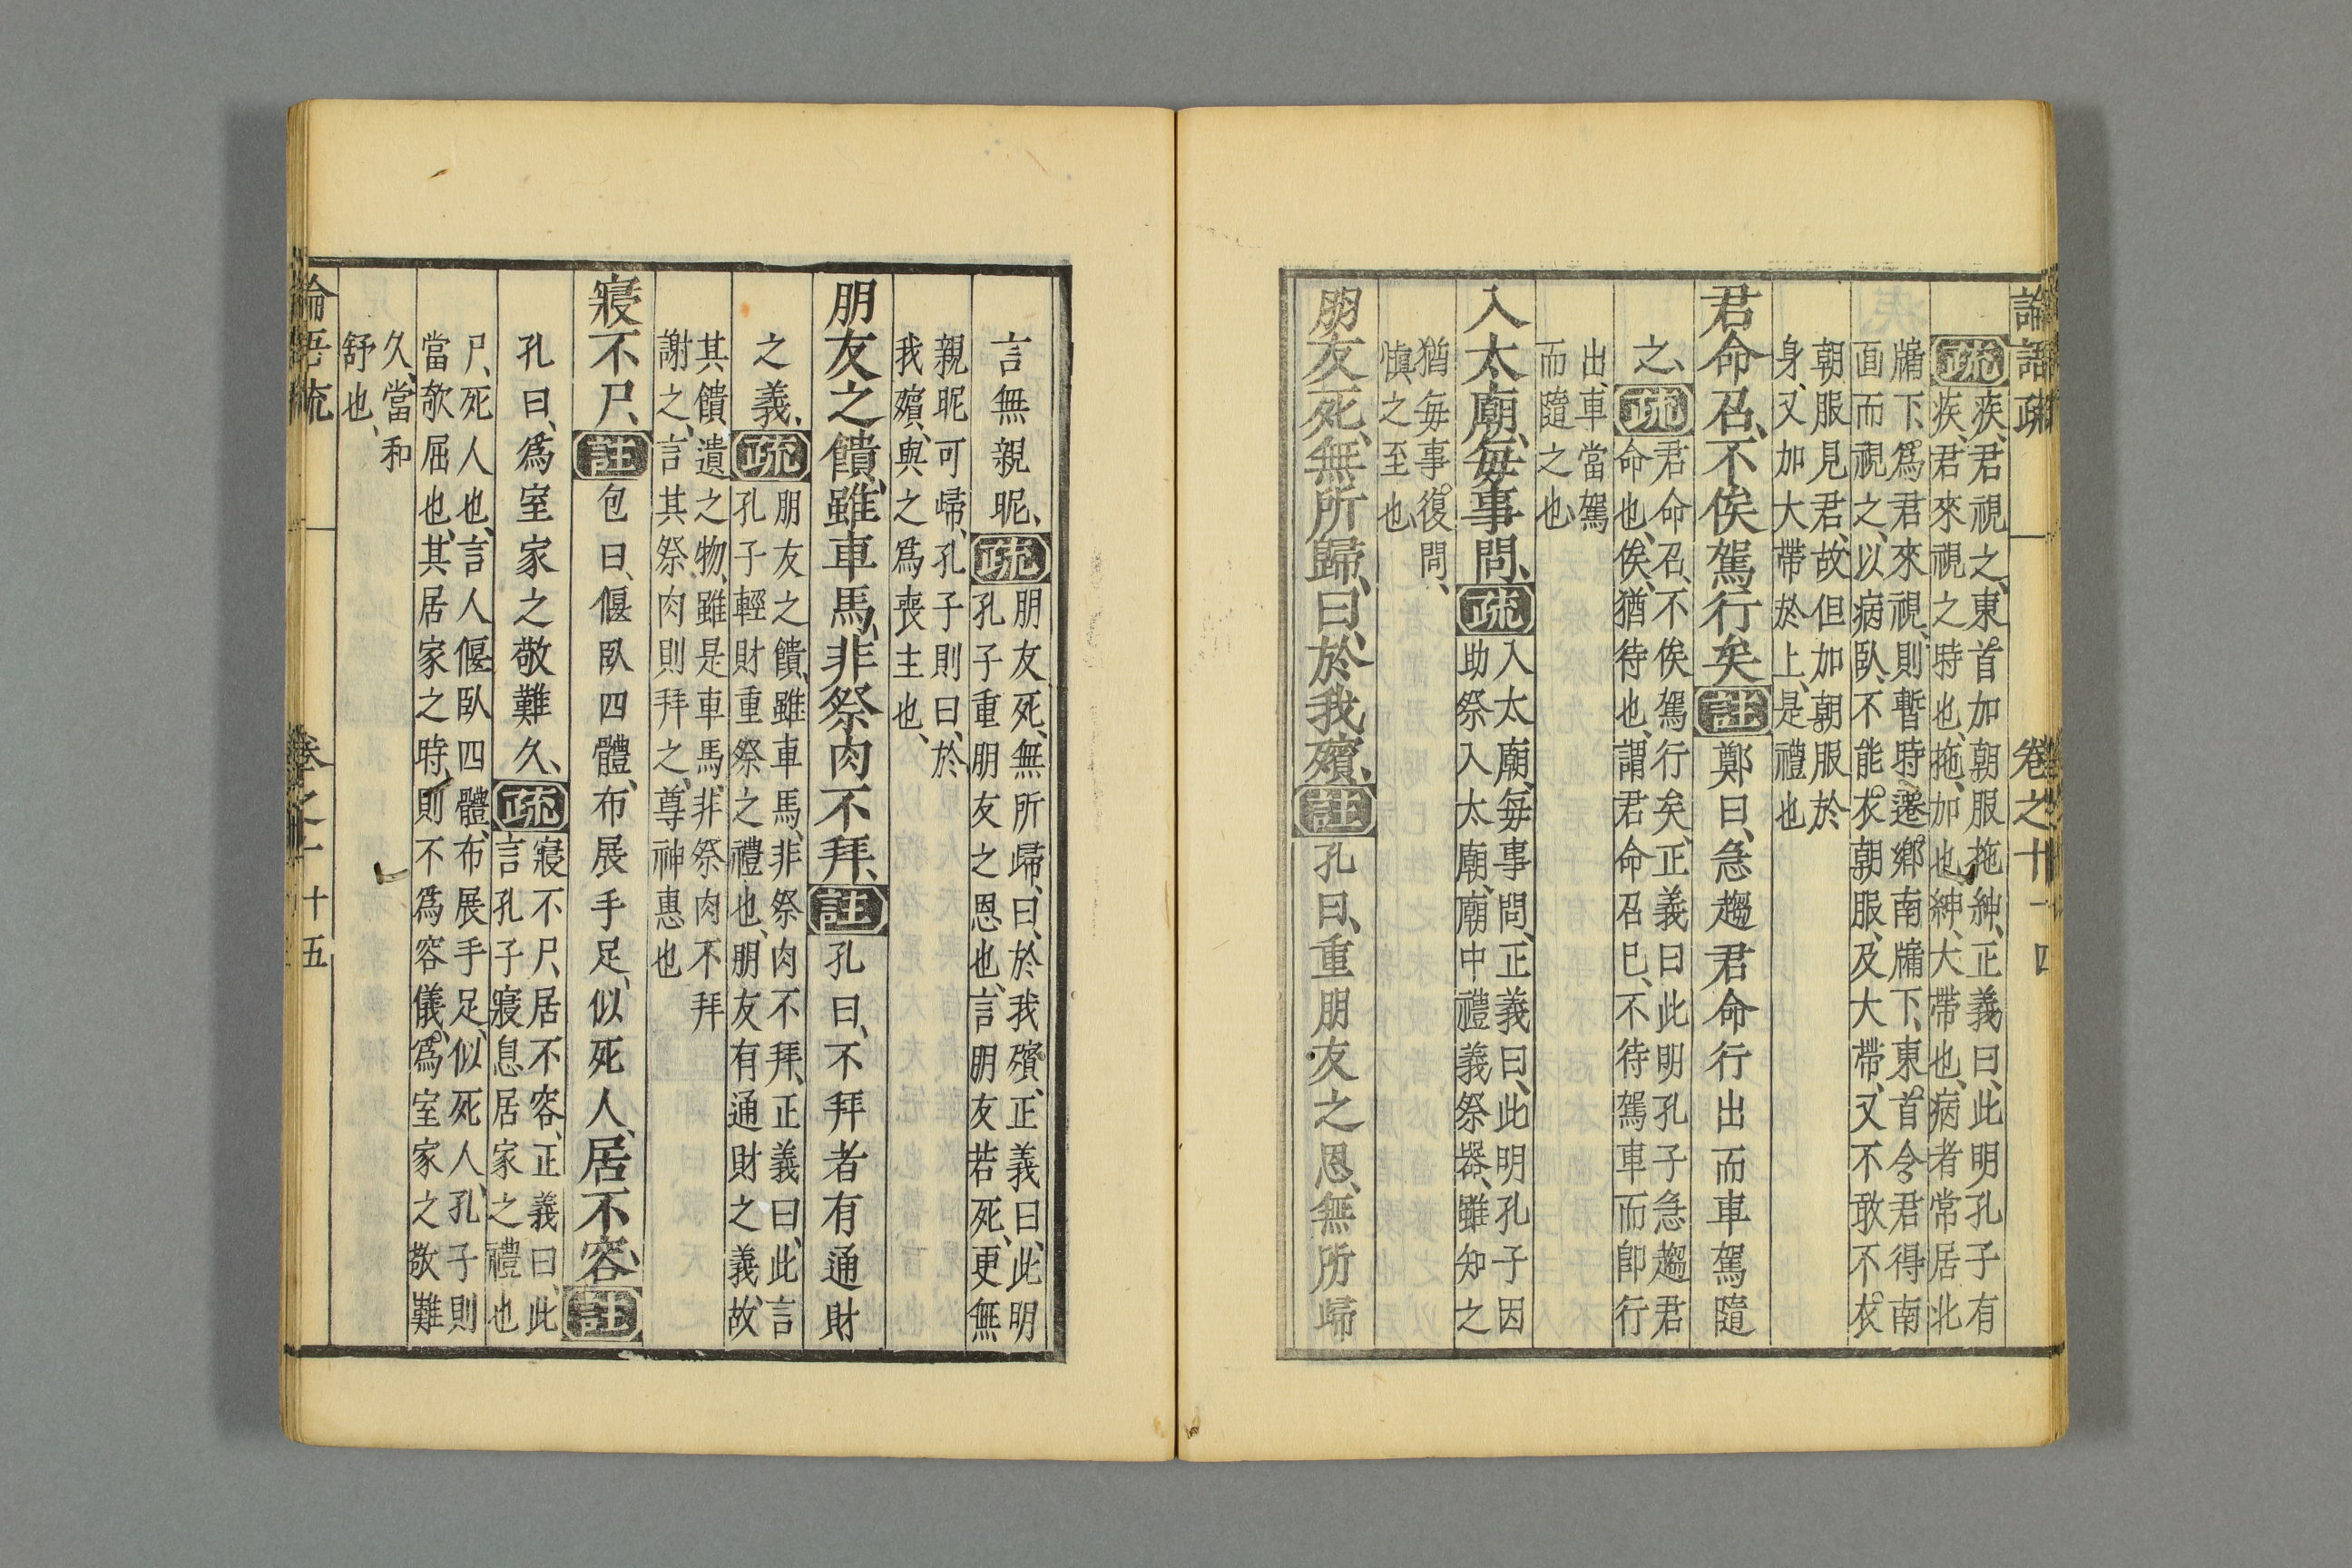 論語疏 卷之十 四
疏 疾、君視之、東首加朝服拖紳、正義曰、此明孔子有
疾、君來視之時也、拖、加也、紳、大帶也、病者常居北
牖下、爲君來視、則暫時遷鄉南牖下、東首令君得南
面而視之、以病臥、不能衣朝服、及大帶、又不敢不衣
朝服見君、故但加朝服於
身、又加大帶於上、是禮也
君命召、不俟駕行矣 註 鄭曰、急趨君命行出而車駕隨
之、疏 君命召、不俟駕行矣、正義曰此明孔子急趨君
命也、俟、猶待也、謂君命召已、不待駕車而卽行
出、車當駕
而隨之也
入太廟、每事問、疏 入太廟、每事問、正義曰、此明孔子因
助祭入太廟、廟中禮義祭器、雖知之
猶每事復問、
愼之至也
朋友死、無所歸、曰、於我殯、註 孔曰、重朋友之恩、無所歸
言無親昵、疏 朋友死、無所歸、曰、於我殯、正義曰、此明
孔子重朋友之恩也、言朋友若死、更無
親昵可歸、孔子則曰、於
我殯、與之爲喪主也、
朋友之饋、雖車馬、非祭肉不拜、註 孔曰、不拜者有通財
之義、疏 朋友之饋、雖車馬、非祭肉不拜、正義曰、此言
孔子輕財重祭之禮也、朋友有通財之義、故
其饋遺之物、雖是車馬、非祭肉不拜
謝之、言其祭肉則拜之、尊神惠也
寢不尸、註 包曰、偃臥四體、布展手足、似死人、居不容、註
孔曰、爲室家之敬難久、疏 寢不尸、居不容、正義曰、此
言孔子寢息居家之禮也
尸、死人也、言人偃臥四體、布展手足、似死人、孔子則
當欹屈也、其居家之時、則不爲容儀、爲室家之敬難
久、當和
舒也、
論語疏 卷之十 十五